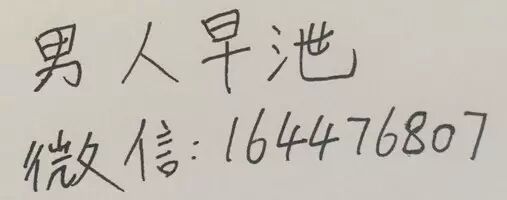 男人早泄
微信:164476807